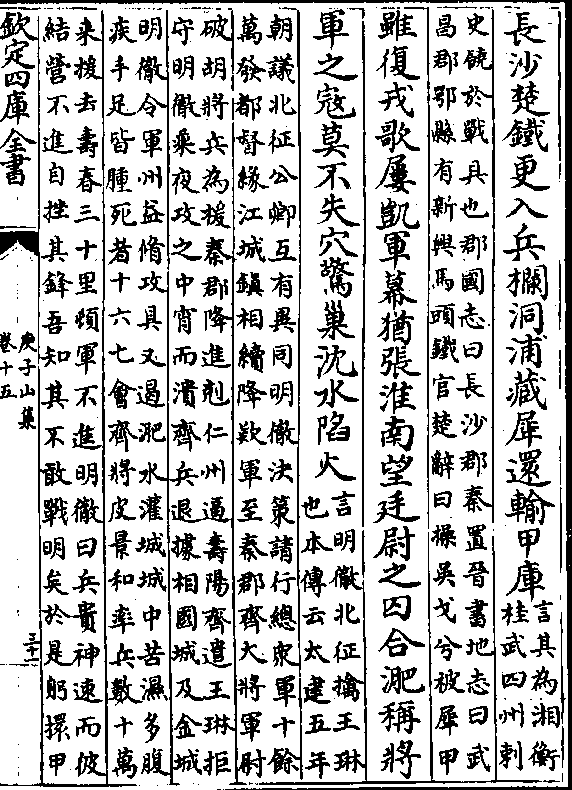 長沙楚鐵更入兵攔洞浦藏犀還輸甲庫
言其為湘衡
桂武四州刺
史饒於戰具也郡國志曰長沙郡秦置晉書地志曰武
昌郡鄂縣有新興馬頭鐵官楚辭曰操吳戈兮被犀甲
雖復戎歌屢凱軍幕猶張淮南望廷尉之囚合淝稱將
軍之宼莫不失穴驚巢沈水陷火
言明徹北征擒王琳
也本傳云太建五年
朝議北征公卿互有異同明徹決策請行總衆軍十餘
萬發都督緣江城鎮相續降欵軍至秦郡齊大將軍尉
破胡將兵為援秦郡降進剋仁州逼壽陽齊遣王琳拒
守明徹乗夜攻之中宵而潰齊兵退據相國城及金城
明徹令軍州益脩攻具又遏淝水灌城城中苦濕多腹
疾手足皆腫死者十六七會齊將皮景和率兵數十萬
来援去壽春三十里頓軍不進明徹曰兵貴神速而彼
結營不進自挫其鋒吾知其不敢戰明矣於是躬擐甲
欽定四庫全書
庾子山集
卷十五
三十一